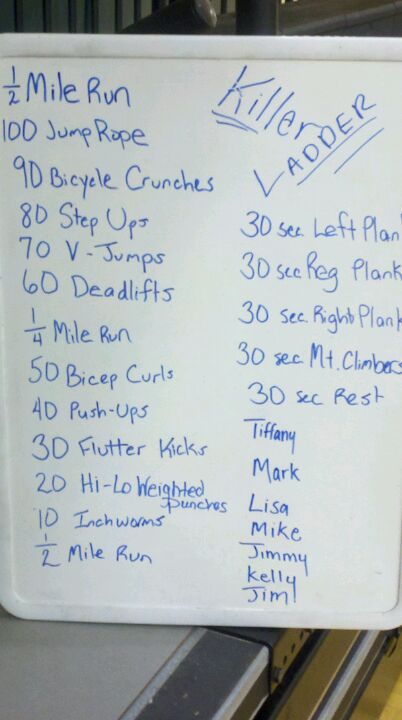 Killer
LADDER
1/2 Mile Run
100 Jump Rope
90 Bicycle Crunches
80 Step Ups
70 V-Jumps
60 Deadlifts
1/4 Mile Run
50 Bicep Curls
40 Push-Ups
30 Flutter Kicks
20 Hi-Lo Weighted
Punches
10 Inchworms
1/2 Mile Run
30 sec Left Plank
30 sec Reg Plank
30 sec Right Plank
30 sec Mt. Climbers
30 sec Rest
Tiffany
Mark
Lisa
Mike
Jimmy
Kelly
Jim